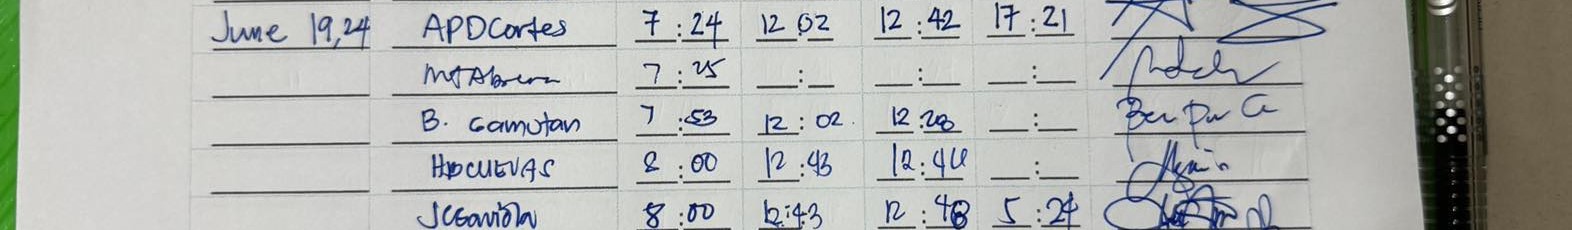 June 19,24 APDCortes 7:24 12 02 12:42 17:21
7:25 : : :
B. Camutan 7:53 12:02 12:28 :
HDCUEVAS 8:00 12:43 12:44 :
JCGaviola 8:00 12:43 12:48 5:24